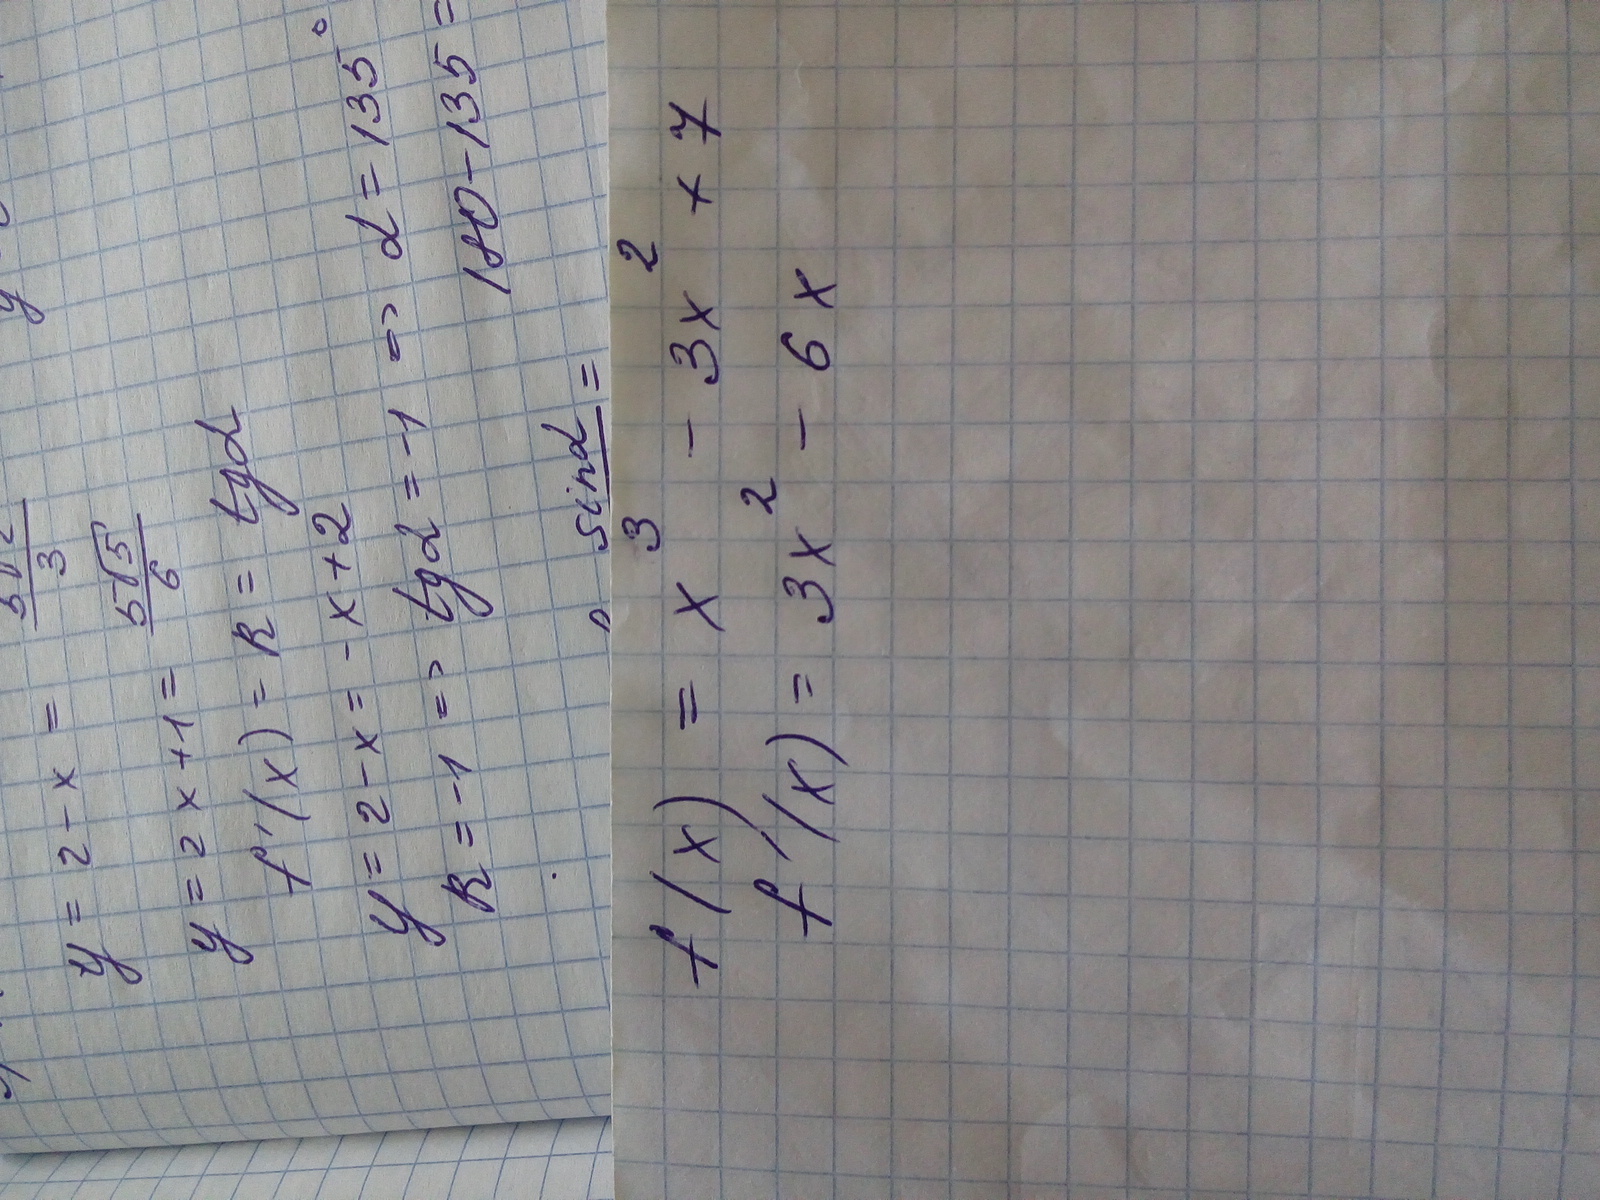 y = 2 - x =
y = 2x + 1 = 5√5/6
f'(x) = k = tgα
y = 2 - x = -x + 2
k = -1 => tgα = -1 => α = 135°
180 - 135 =
sinα =
f(x) = x³ - 3x² + 7
f'(x) = 3x² - 6x